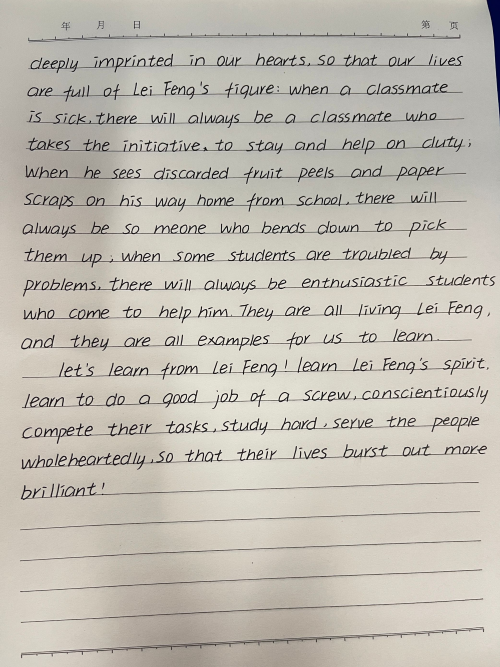 年 月 日 第 页
deeply imprinted in our hearts, so that our lives
are full of Lei Feng's figure: when a classmate
is sick, there will always be a classmate who
takes the initiative, to stay and help on duty;
When he sees discarded fruit peels and paper
scraps on his way home from school, there will
always be so meone who bends down to pick
them up; when some students are troubled by
problems, there will always be enthusiastic students
who come to help him. They are all living Lei Feng,
and they are all examples for us to learn.
let's learn from Lei Feng! learn Lei Feng's spirit,
learn to do a good job of a screw, conscientiously
compete their tasks, study hard, serve the people
wholeheartedly, so that their lives burst out more
brilliant!